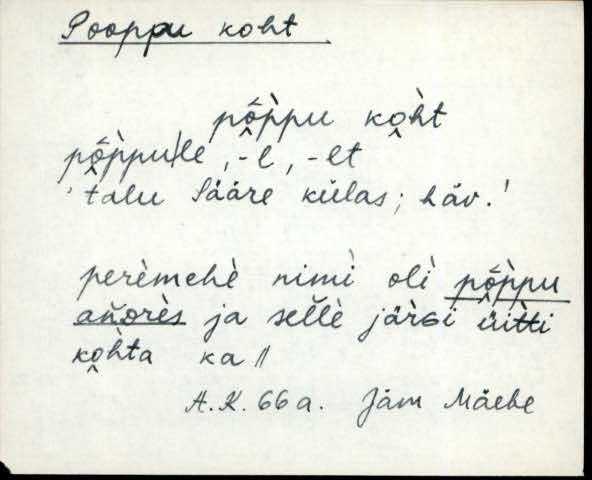 Pooppu koht
pô̬p̀pu ko̬h̀t
pô̬p̀pu|le, -l, -lt
'talu Sääre külas; häv.'
perèmehè nimì olì pô̬p̀pu
an̆orès ja sellè jär̀ɢi üìtti
ko̬h̀ta ka ||
A.K. 66 a. Jäm Mäebe